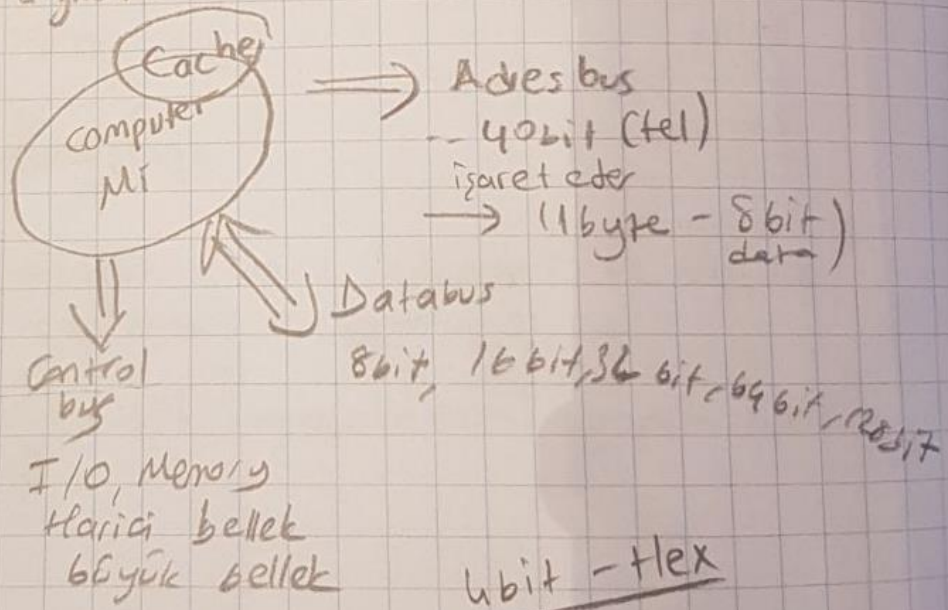 Cache
computer
Mi
Adres bus
-- 40bit (tel)
işaret eder
→ (1byte - 8bit)
data
Databus
8bit, 16 bit, 32 bit, 64 bit, 128bit
Control
bus
I/O, Memory
Harici bellek
büyük bellek
4bit - Hex